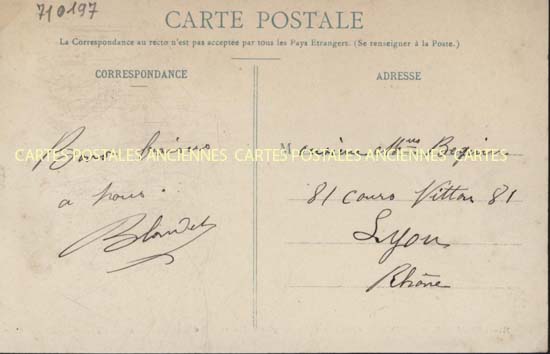 710197
CARTE POSTALE
La Correspondance au recto n'est pas acceptée par tous les Pays Etrangers. (Se renseigner à la Poste.)
CORRESPONDANCE
ADRESSE
CARTES POSTALES ANCIENNES CARTES POSTALES ANCIENNES CARTES POSTALES
Bons
a vous.
Blondel
Monsieur
81 cours Vitton 81
Lyon
Rhône